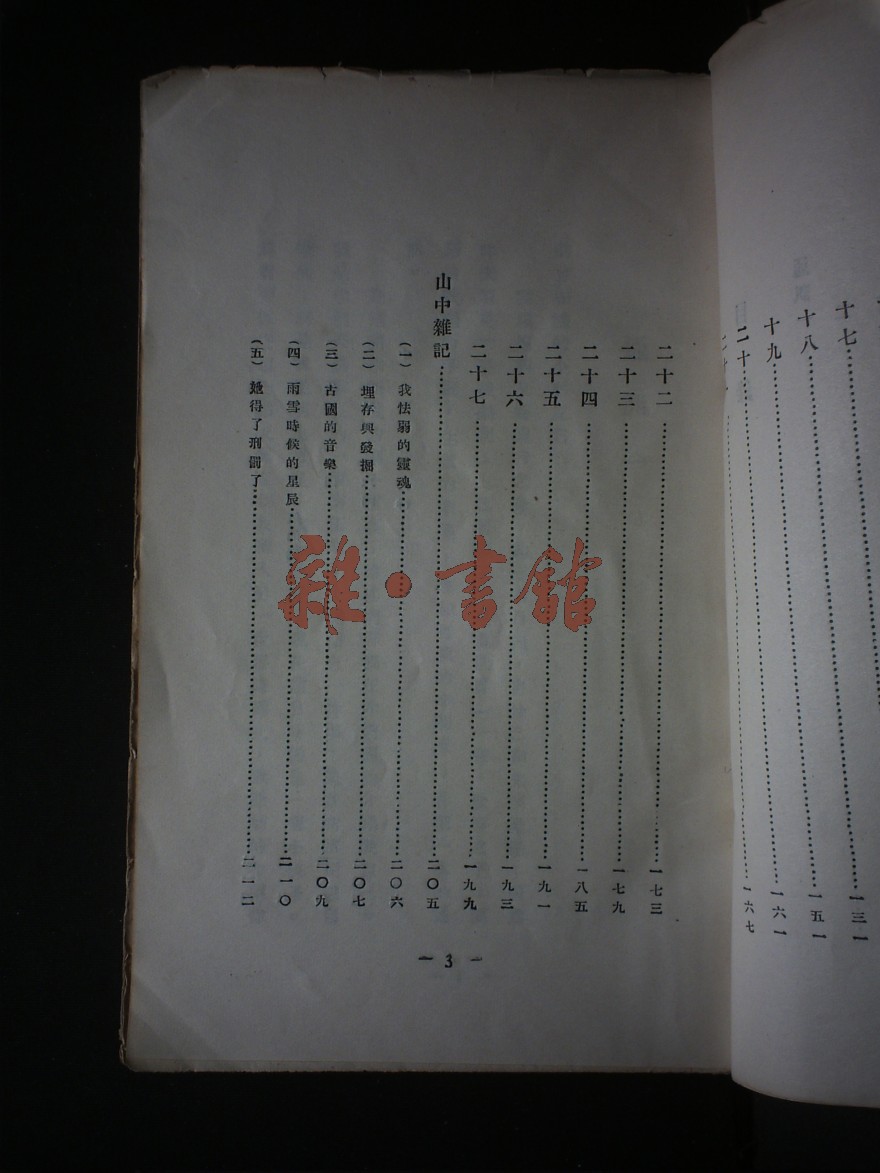 十七……一三一
十八……一五一
十九……一六一
二十……一六七
二十二……一七三
二十三……一七九
二十四……一八五
二十五……一九一
二十六……一九三
二十七……一九九
山中雜記……二〇五
(一)我怯弱的靈魂……二〇六
(二)埋存與發掘……二〇七
(三)古國的音樂……二〇九
(四)雨雪時候的星辰……二一〇
(五)她得了刑罰了……二一二
— 3 —
雜·書館